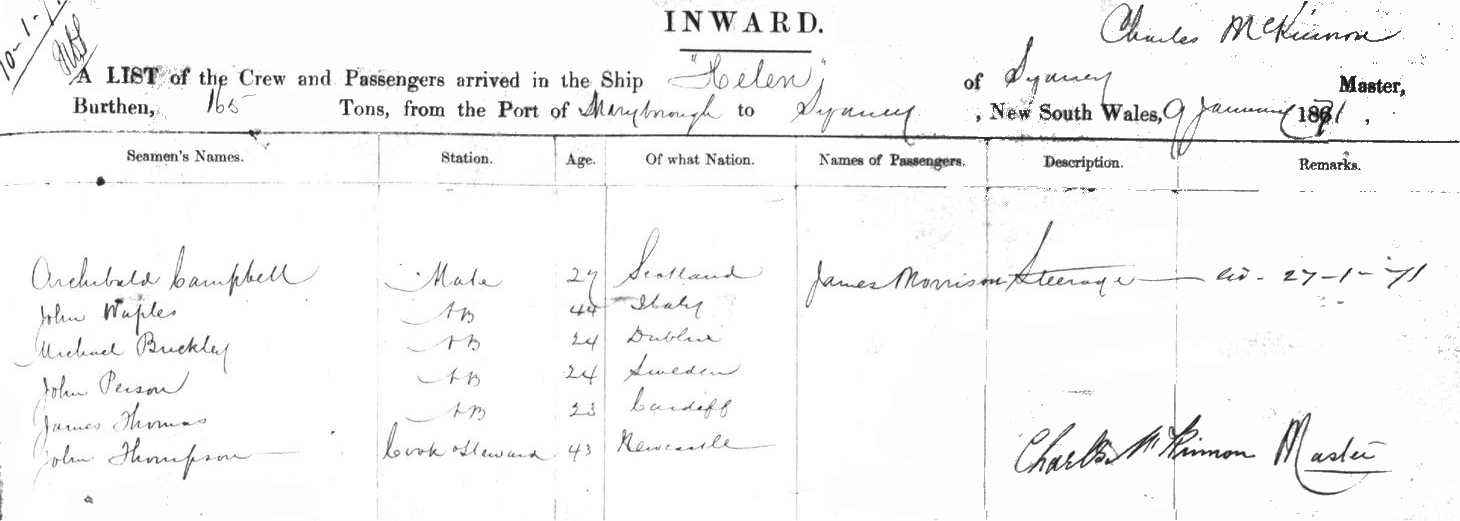 10-1-
INWARD.
Charles McKinnon
A LIST of the Crew and Passengers arrived in the Ship "Helen" of Sydney Master,
Burthen, 165 Tons, from the Port of Maryborough to Sydney, New South Wales, 9 January 1871,
Seamen's Names. Station. Age. Of what Nation. Names of Passengers. Description. Remarks.
Archibald Campbell Mate 27 Scotland James Morrison Steerage 27-1-71
John Waples AB 44 Italy
Michael Buckley AB 24 Dublin
John Person AB 24 Sweden
James Thomas AB 23 Cardiff
John Thompson Cook Steward 43 Newcastle
Charles McKinnon Master